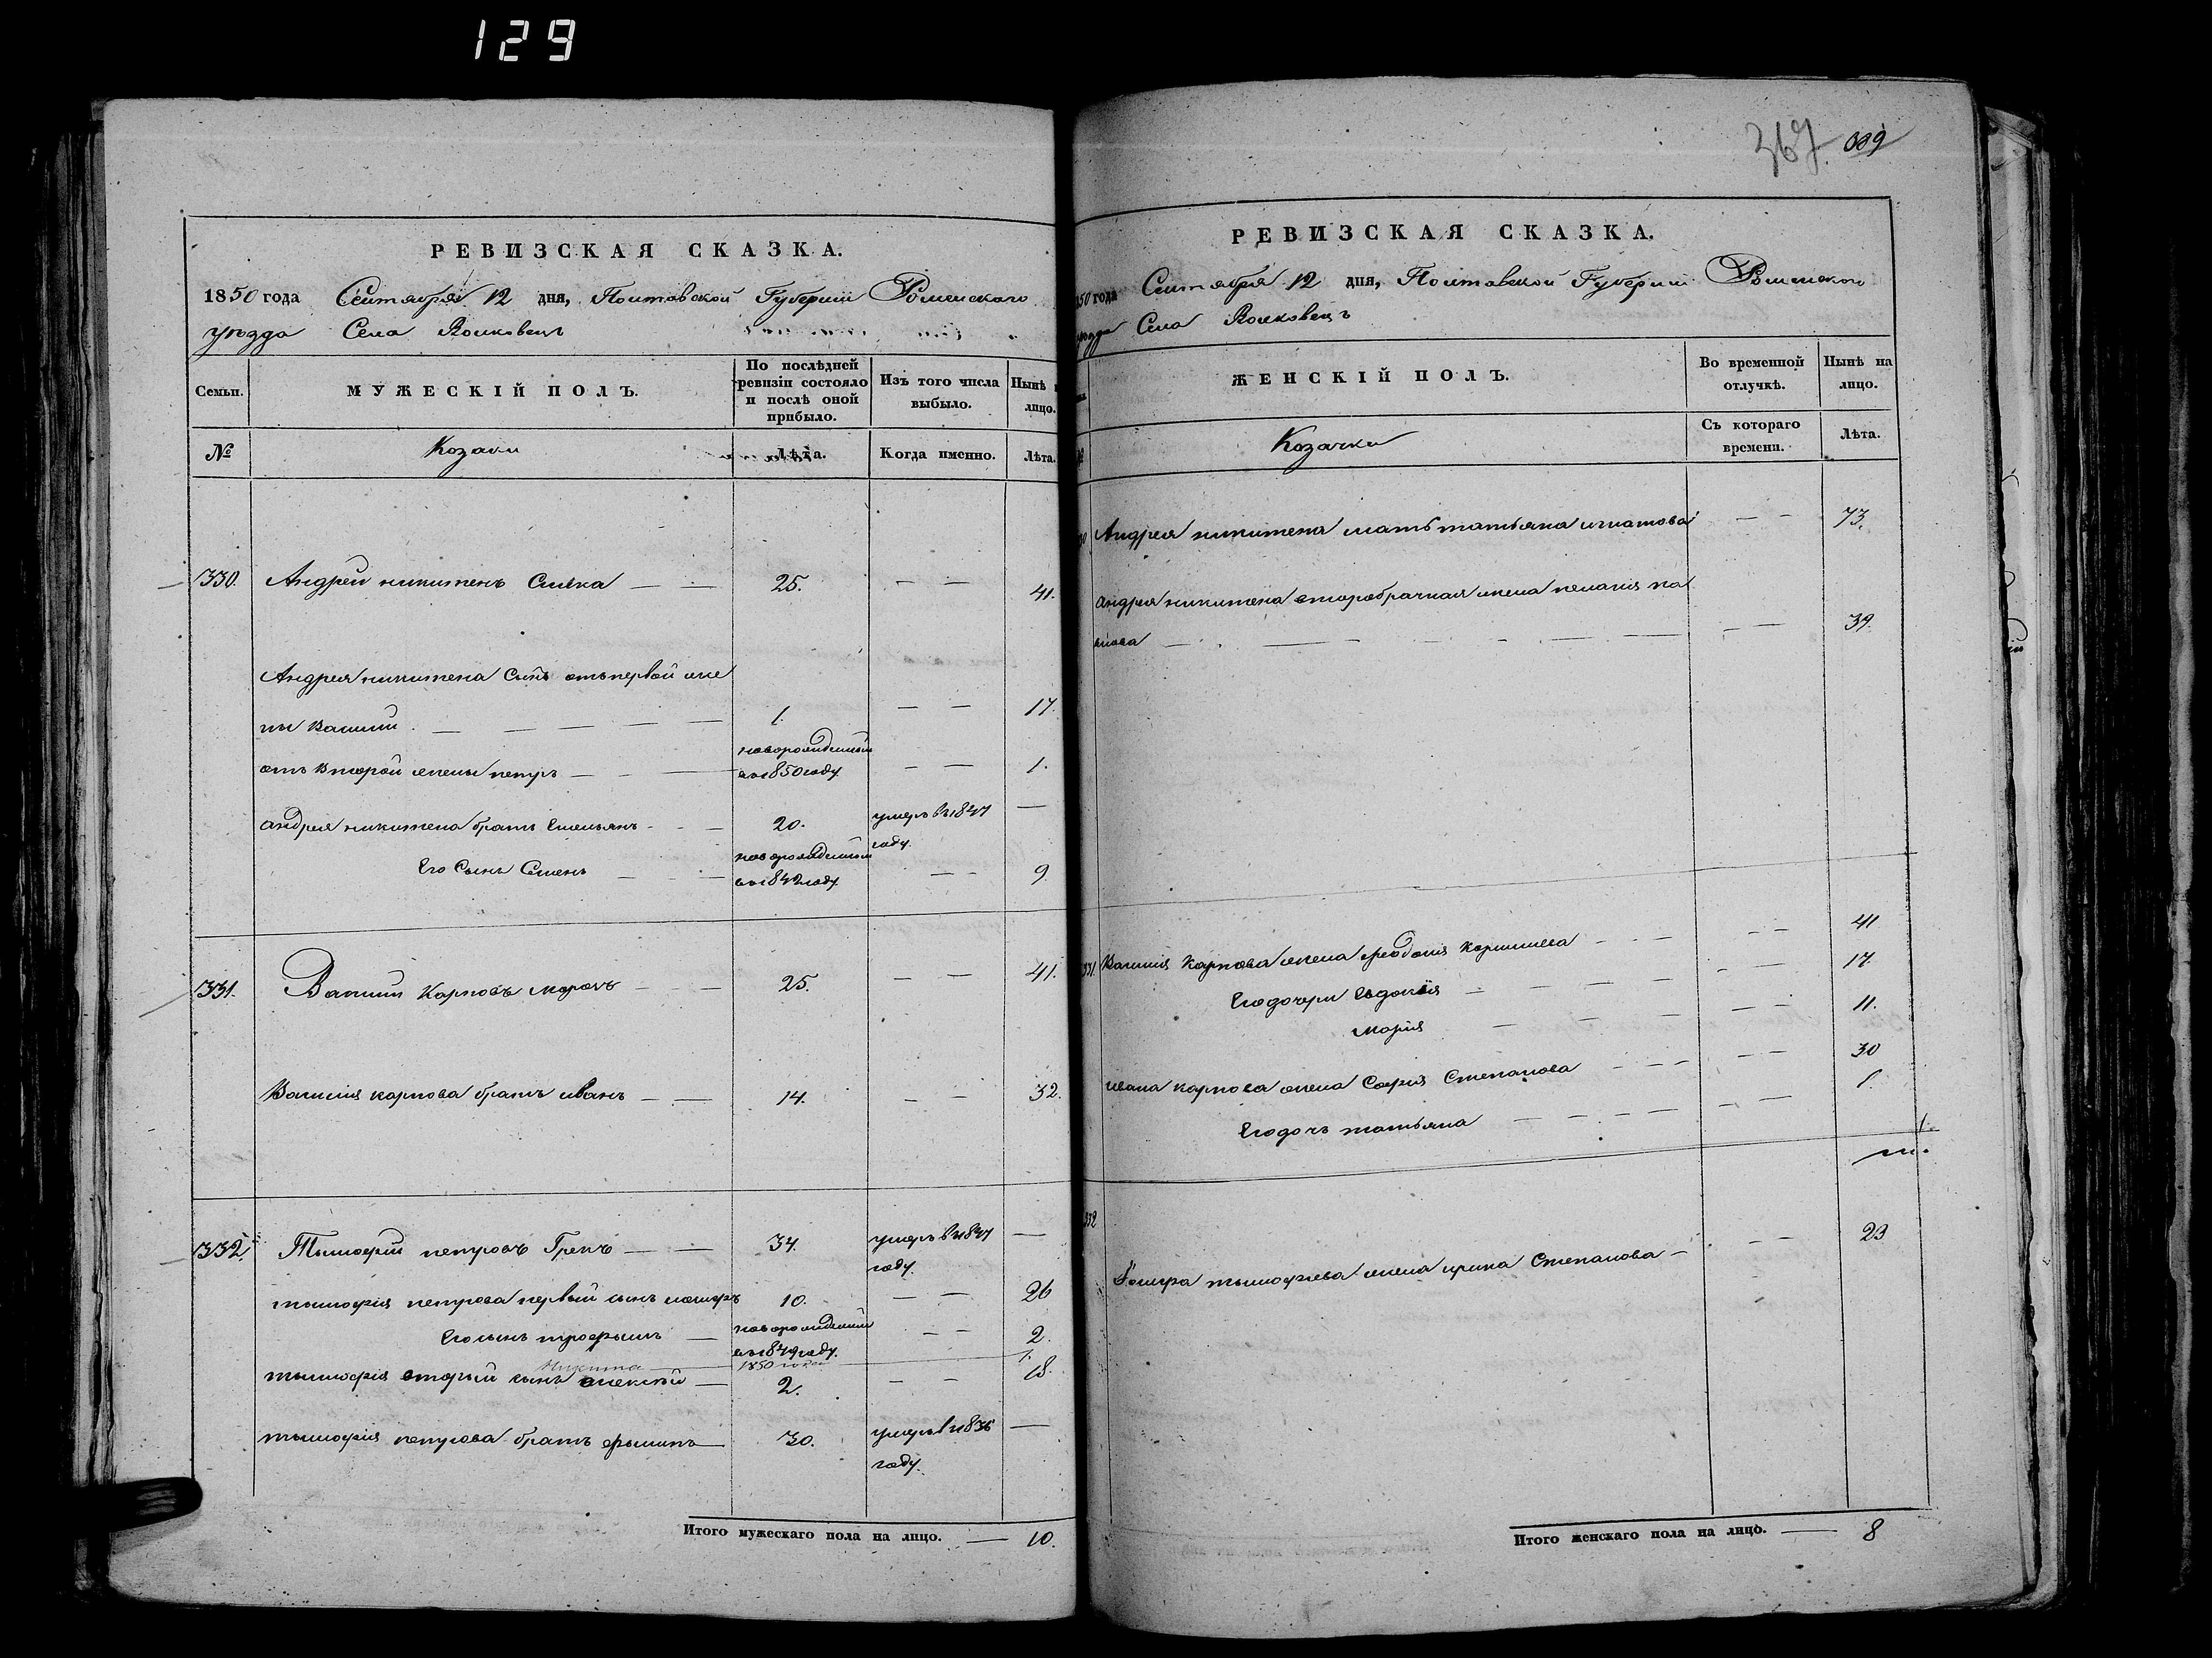 129
РЕВИЗСКАЯ СКАЗКА.
1850 года Сентября 12 дня, Полтавской Губернии Роменскаго
уѣзда Села Волковецъ
Семьи.
МУЖЕСКІЙ ПОЛЪ.
По послѣдней ревизіи состояло и послѣ оной прибыло.
Изъ того числа выбыло.
Нынѣ лицо.
№ Козаки Лѣта. Когда именно. Лѣта.
330. Андрей никитенъ Сливка — — 25. — — 41.
Андрея никитена Сынъ отъ первой же
ны Василій. — — — — 1. — — 17.
отъ второй жены петръ — — новорожденный
въ 1850 году. — — 1.
андрея никитена братъ Емельянъ — — 20. умеръ въ 1847 —
году.
Его Сынъ Семенъ — — новорожденный
въ 1842 году. — — 9
331. Василій Карповъ морозъ — — 25. — — 41.
Василія карпова братъ иванъ — — 14. — — 32.
332. Тымофій петровъ Грекъ — — 34. умеръ въ 1847 —
году.
тымофія петрова первый сынъ 10. — — 26
Его сынъ трофымъ — новорожденный
въ 1849 году. — — 2.
Никита — 1850 — 1.
тымофія вторый сынъ алексѣй — 2. — — 18.
тымофія петрова братъ — 30. умеръ въ 1836 —
году.
Итого мужескаго пола на лицо. — 10.
367 339
РЕВИЗСКАЯ СКАЗКА.
50 года Сентября 12 дня, Полтавской Губерніи Роменскаго
уѣзда Села Волковецъ
ЖЕНСКІЙ ПОЛЪ.
Во временной отлучкѣ.
Нынѣ на лицо.
Козачки Съ котораго времени. Лѣта.
Андрея никитена мать татьяна игнатова — — 73.
андрея никитена второбрачная жена пелагія па
влова — — — — — — 39.
331. Василія Карпова жена Феодосія Корнилиева — — — — 41
Его дочери Евдокія — — — — 17.
Марія — — — — 11.
ивана карпова жена Софія Степанова — — — — 30
Его дочь татьяна — — — — 1.
1.
332 тымофіева жена ирина Степанова — — — 23
Итого женскаго пола на лицо. — 8